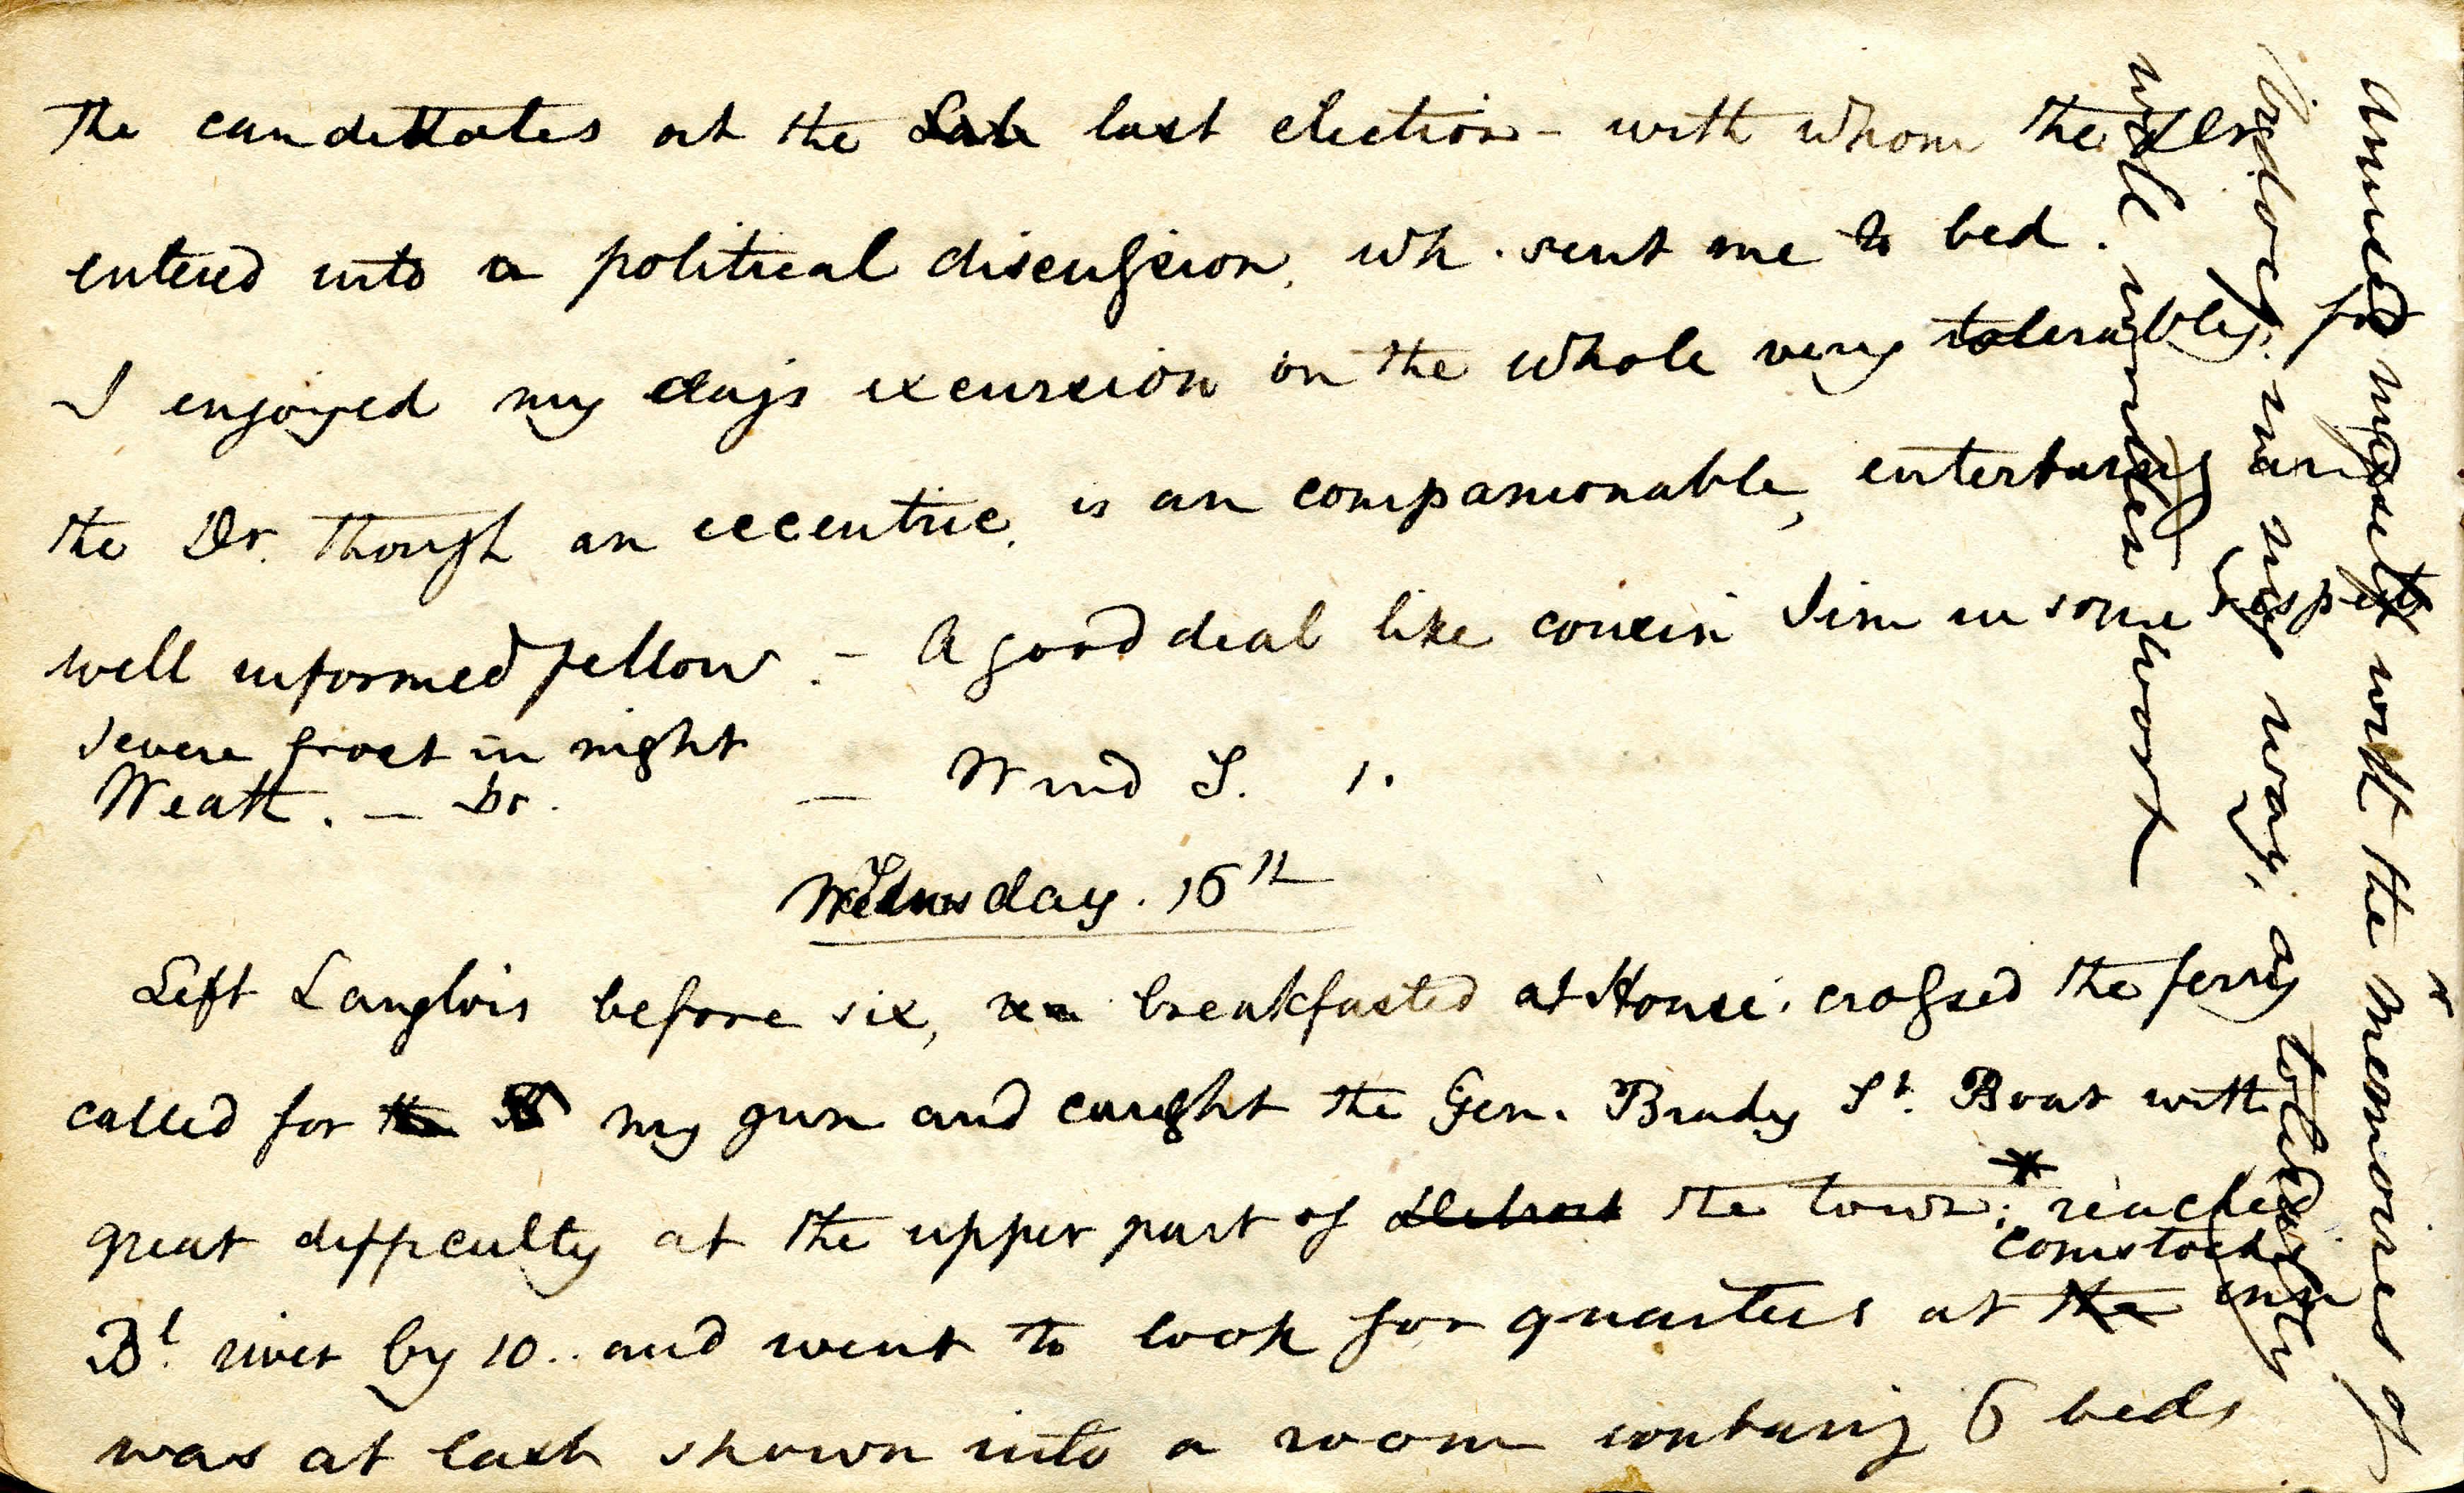 The candidates at the last election - with whom the Dr
entered into a political discussion, wh. sent me to bed.
I enjoyed my days excursion on the whole very tolerably, for
the Dr. though an eccentric, is an companionable, entertaing
well informed fellow. - A good deal like cousin Jim in some respects
Severe frost in night
Weath. - Do. - Wind S. 1.
Wednesday. 16th
Left Langlois before six, breakfasted at House, crossed the ferry
called for my gun and caught the Gen. Brady St. Boat with
great difficulty at the upper part of Detroit the town; * reached
Comstocks
Bl. river by 10.. and went to look for quarters at the inn
was at last shown into a room containg 6 beds
Amused myself with the Memoires of
Vidocq, in my way, a tolerably
well written work